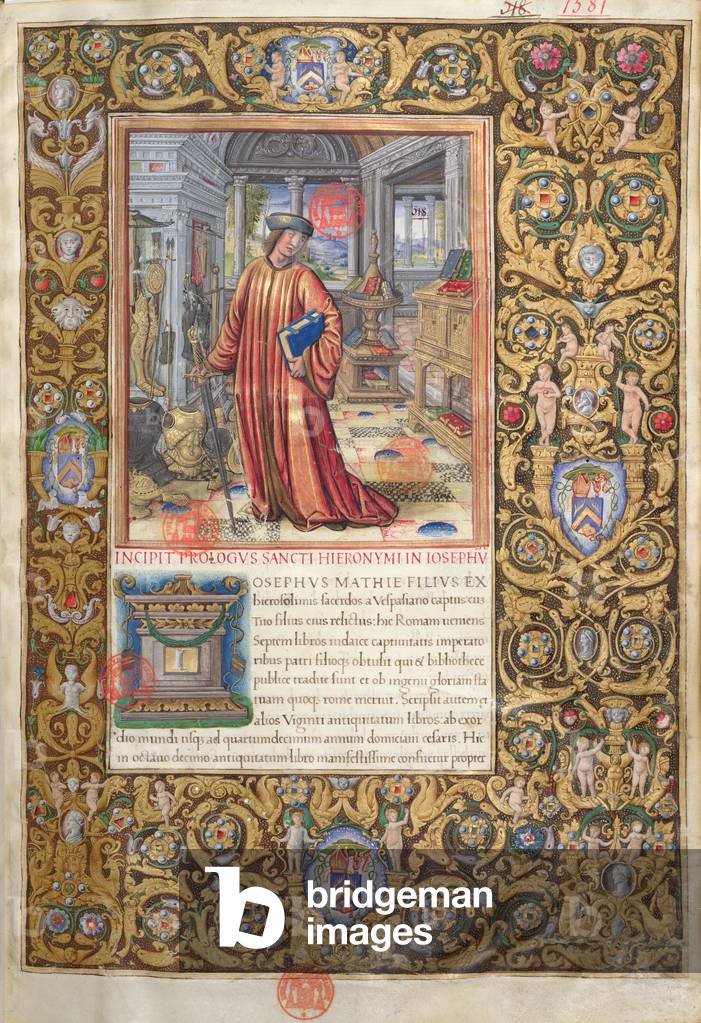 518 1581
518
INCIPIT PROLOGVS SANCTI HIERONYMI IN IOSEPHV̄
IOSEPHVS MATHIE FILIVS EX
hierosolimis sacerdos a Vespasiano captus: cus
Tito filius eius relictus: hic Romam ueniens
Septem libros iudaice captiuitatis imperato
ribus patri filioq; obtulit qui & bibliothece
publice traditi sunt et ob ingenii gloriam sta
tuam quoq; rome meruit. Scripsit autem et
alios Viginti antiquitatum libros: ab exor
dio mundi usq; ad quartumdecimum annum domiciani cesaris. Hic
in octauo decimo antiquitatum libro manifestissime confitetur propter
b bridgeman
images